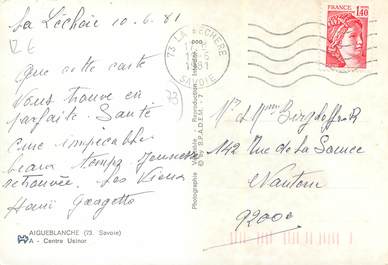 La Léchère 10.6.81
Que cette carte
Vous trouve en
parfaite Santé
Cure impeccable
beau temps Jeunesse
retrouvée. Les Vieux
Henri Georgette
AIGUEBLANCHE (73. Savoie)
A - Centre Usinor
Photographie Véritable - Reproduction Interdite
© by S.P.A.D.E.M.
73 LA LECHERE
SAVOIE
FRANCE
1,40
Mr et Mme
142 Rue de la Source
Nanterre
92000